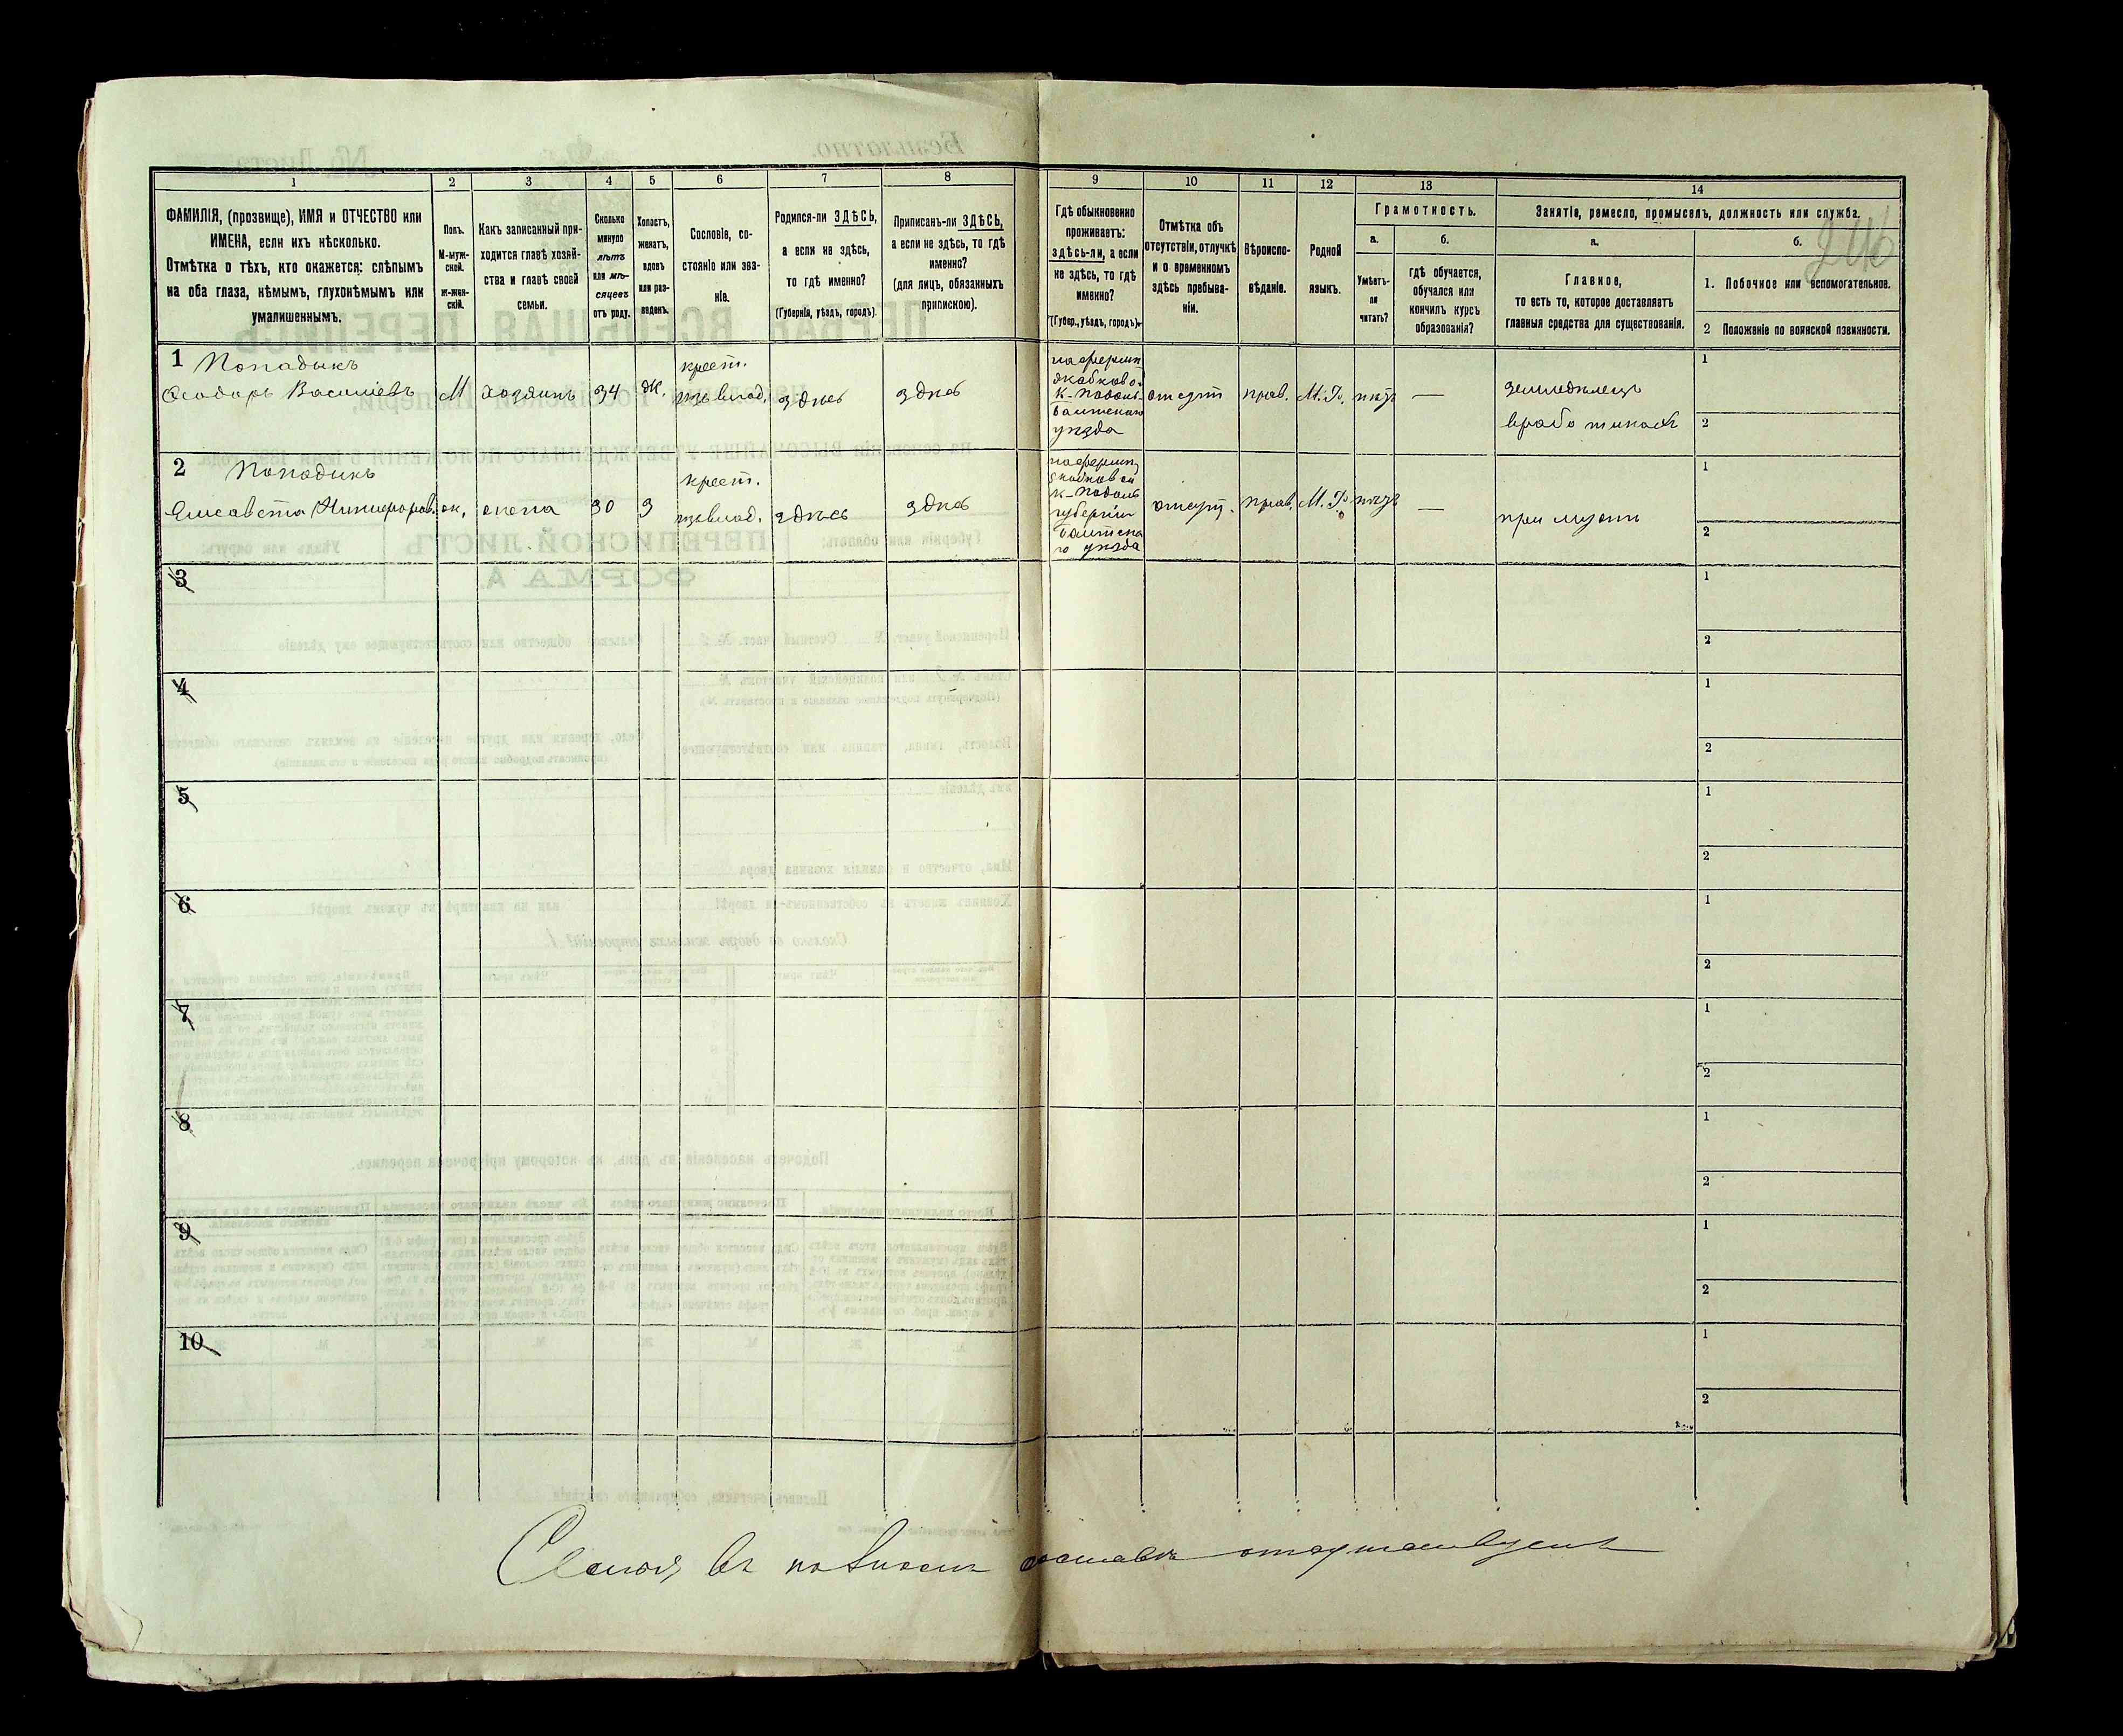 1 2 3 4 5 6 7 8 9 10 11 12 13 14
ФАМИЛІЯ, (прозвище), ИМЯ и ОТЧЕСТВО или
ИМЕНА, если ихъ нѣсколько.
Отмѣтка о тѣхъ, кто окажется: слѣпымъ
на оба глаза, нѣмымъ, глухонѣмымъ или
умалишеннымъ.
Полъ.
М-муж-
ской.
ж-жен-
скій.
Какъ записанный при-
ходится главѣ хозяй-
ства и главѣ своей
семьи.
Сколько
минуло
лѣтъ
или мѣ-
сяцевъ
отъ роду.
Холостъ,
женатъ,
вдовъ
или раз-
веденъ.
Сословіе, со-
стояніе или зва-
ніе.
Родился-ли ЗДѢСЬ,
а если не здѣсь,
то гдѣ именно?
(Губернія, уѣздъ, городъ).
Приписанъ-ли ЗДѢСЬ,
а если не здѣсь, то гдѣ
именно?
(для лицъ, обязанныхъ
припискою).
Гдѣ обыкновенно
проживаетъ:
здѣсь-ли, а если
не здѣсь, то гдѣ
именно?
(Губер., уѣздъ, городъ).
Отмѣтка объ
отсутствіи, отлучкѣ
и о временномъ
здѣсь пребыва-
ніи.
Вѣроиспо-
вѣданіе.
Родной
языкъ.
Грамотность.
а.
Умѣетъ-
ли
читать?
б.
гдѣ обучается,
обучался или
кончилъ курсъ
образованія?
Занятіе, ремесло, промыселъ, должность или служба.
а.
Главное,
то есть то, которое доставляетъ
главныя средства для существованія.
б.
1. Побочное или вспомогательное.
2 Положеніе по воинской повинности.
1 Попадыкъ
Ѳеодоръ Василіевъ
М
хозяинъ
34
ж.
крест.
здѣсь
здѣсь
К-Подоль-
уѣзда
отсут
прав.
М. Р.
нѣтъ
—
земледѣлецъ
1
2
2 Попадикъ
Елисавета Никифоров.
ж.
жена
30
з
крест.
здѣсь
здѣсь
К-Подоль
губерніи
уѣзда
отсут.
прав.
М. Р.
нѣтъ
—
при мужѣ
1
2
3
1
2
4
1
2
5
1
2
6
1
2
7
1
2
8
1
2
9
1
2
10
1
2
Семья въ полномъ составѣ отсутствуетъ